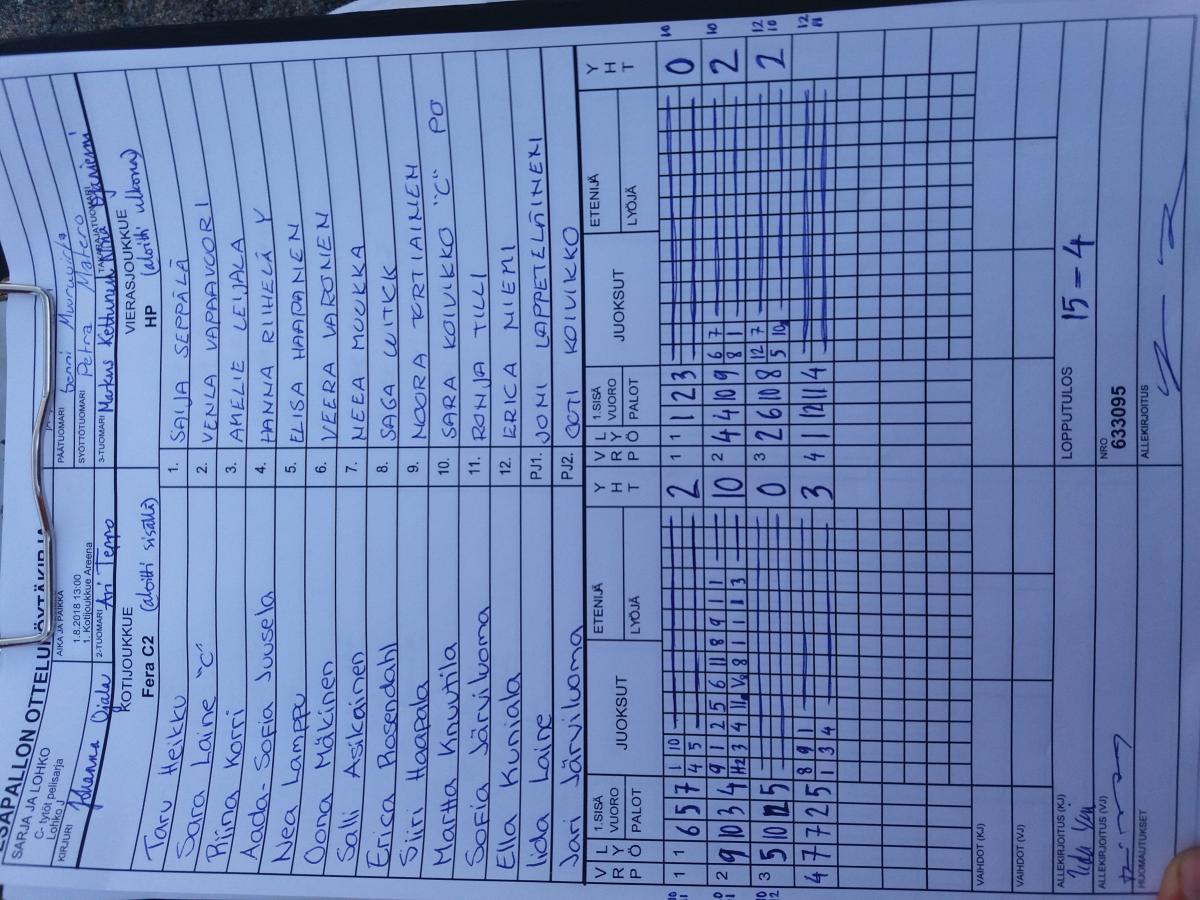 PESAPALLON OTTELUPÖYTÄKIRJA
SARJA JA LOHKO
C- tytöt pelisarja
Lohko J
AIKA JA PAIKKA
1.8.2018 13:00
1. Kotijoukkue Areena
PÄÄTUOMARI
SYÖTTÖTUOMARI Petra Matero
KIRJURI Johanna Ojala
2-TUOMARI Ari Teppo
3-TUOMARI Markus Kettunen
TAKARAJATUOMARI
KOTIJOUKKUE
Fera C2 (aloitti sisällä)
VIERASJOUKKUE
HP (aloitti ulkona)
Taru Heikku 1. SAIJA SEPPÄLÄ
Sara Laine "C" 2. VENLA VAPAAVUORI
Piina Korri 3. AMELIE LEIJALA
Aada-Sofia Juusela 4. HANNA RIIHELÄ Y
Nea Lamppu 5. ELISA HAAPANEN
Oona Mäkinen 6. VEERA VARONEN
Salli Asikainen 7. NEEA MUUKKA
Erica Rosendahl 8. SAGA WITICK
Siiri Haapala 9. NOORA TORTIAINEN
Martta Knuutila 10. SARA KOIVIKKO "C" PO
Sofia Järviluoma 11. RONJA TILLI
Ella Kuniala 12. ERICA NIEMI
Iida Laine PJ1. JONI LAPPETELÄINEN
Jari Järviluoma PJ2. COTI KOIVIKKO
V R P L Y Ö 1.SISÄ VUORO PALOT JUOKSUT ETENIJÄ LYÖJÄ Y H T V R P L Y Ö 1.SISÄ VUORO PALOT JUOKSUT ETENIJÄ LYÖJÄ Y H T
1 1 6 5 7 1 10 2 1 1 1 2 3 0
4 5
2 9 10 3 4 9 1 2 5 6 11 8 9 1 1 10 2 4 4 10 9 6 7 2
8 1
3 5 10 12 5 0 3 2 6 10 8 12 7 2
5 10
4 7 7 2 5 8 9 1 3 4 1 12 11 4
1 3 4
VAIHDOT (KJ)
VAIHDOT (VJ)
ALLEKIRJOITUS (KJ) LOPPUTULOS 15 = 4
ALLEKIRJOITUS (VJ) NRO
633095
HUOMAUTUKSET ALLEKIRJOITUS